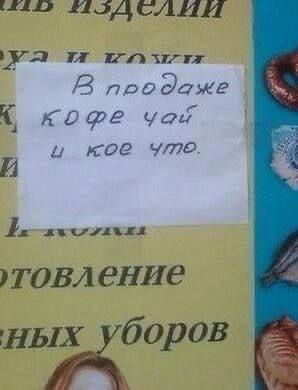 ив изделий
еха и кожи
В продаже
кофе чай
и кое что.
и кожи
отовление
вных уборов